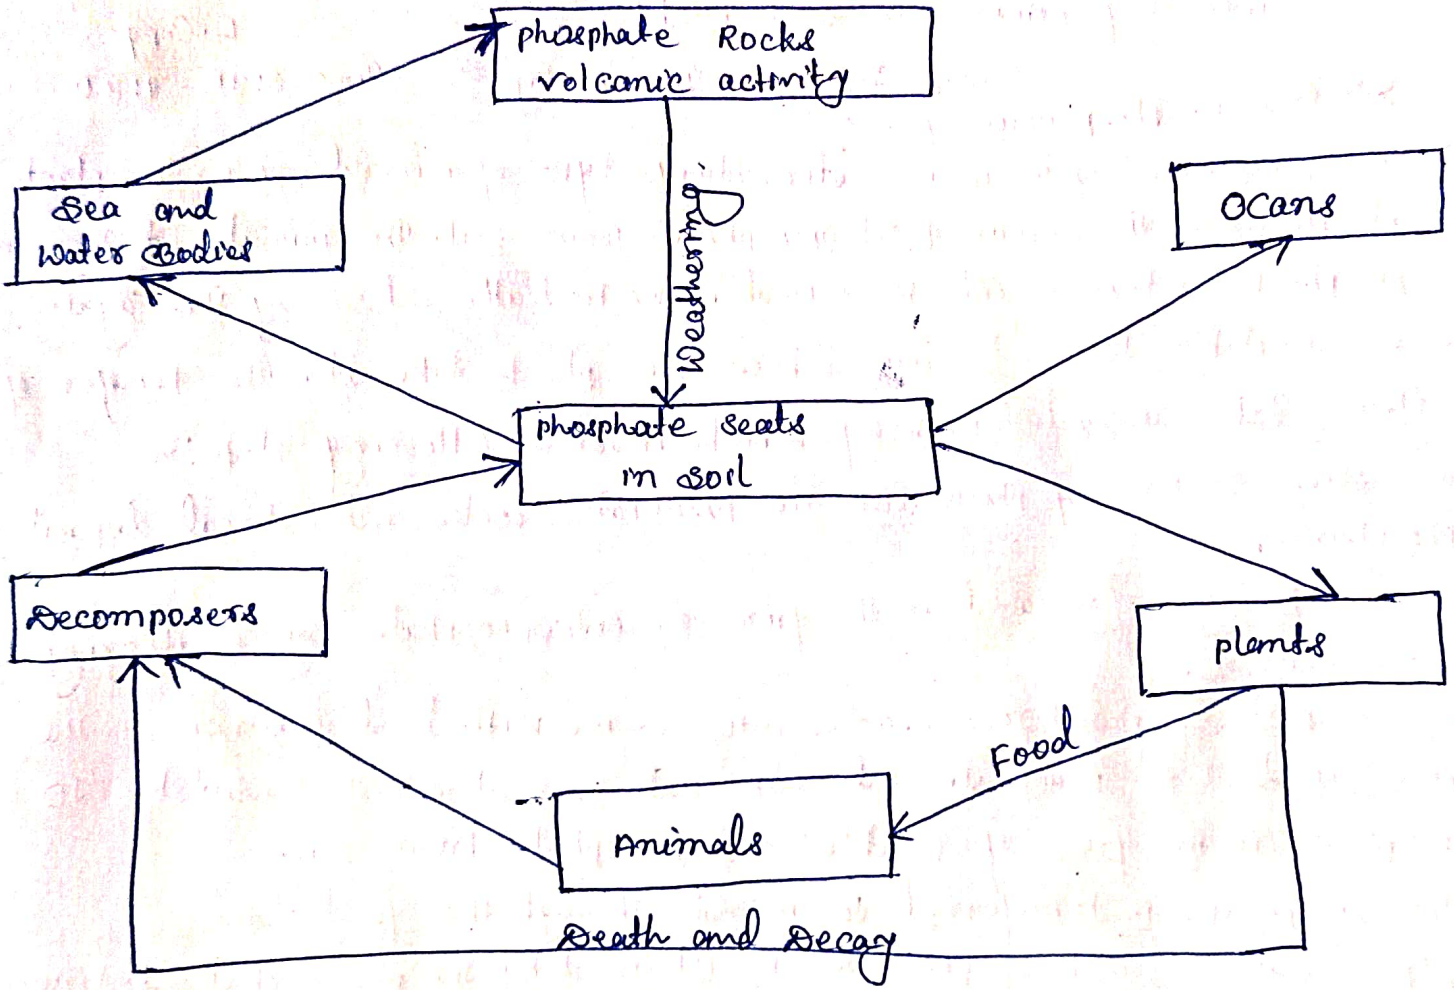 phosphate Rocks
volcanic activity
Sea and
Water Bodies
Weathering
Ocans
phosphate seats
in soil
Decomposers
plants
Food
Animals
Death and Decay